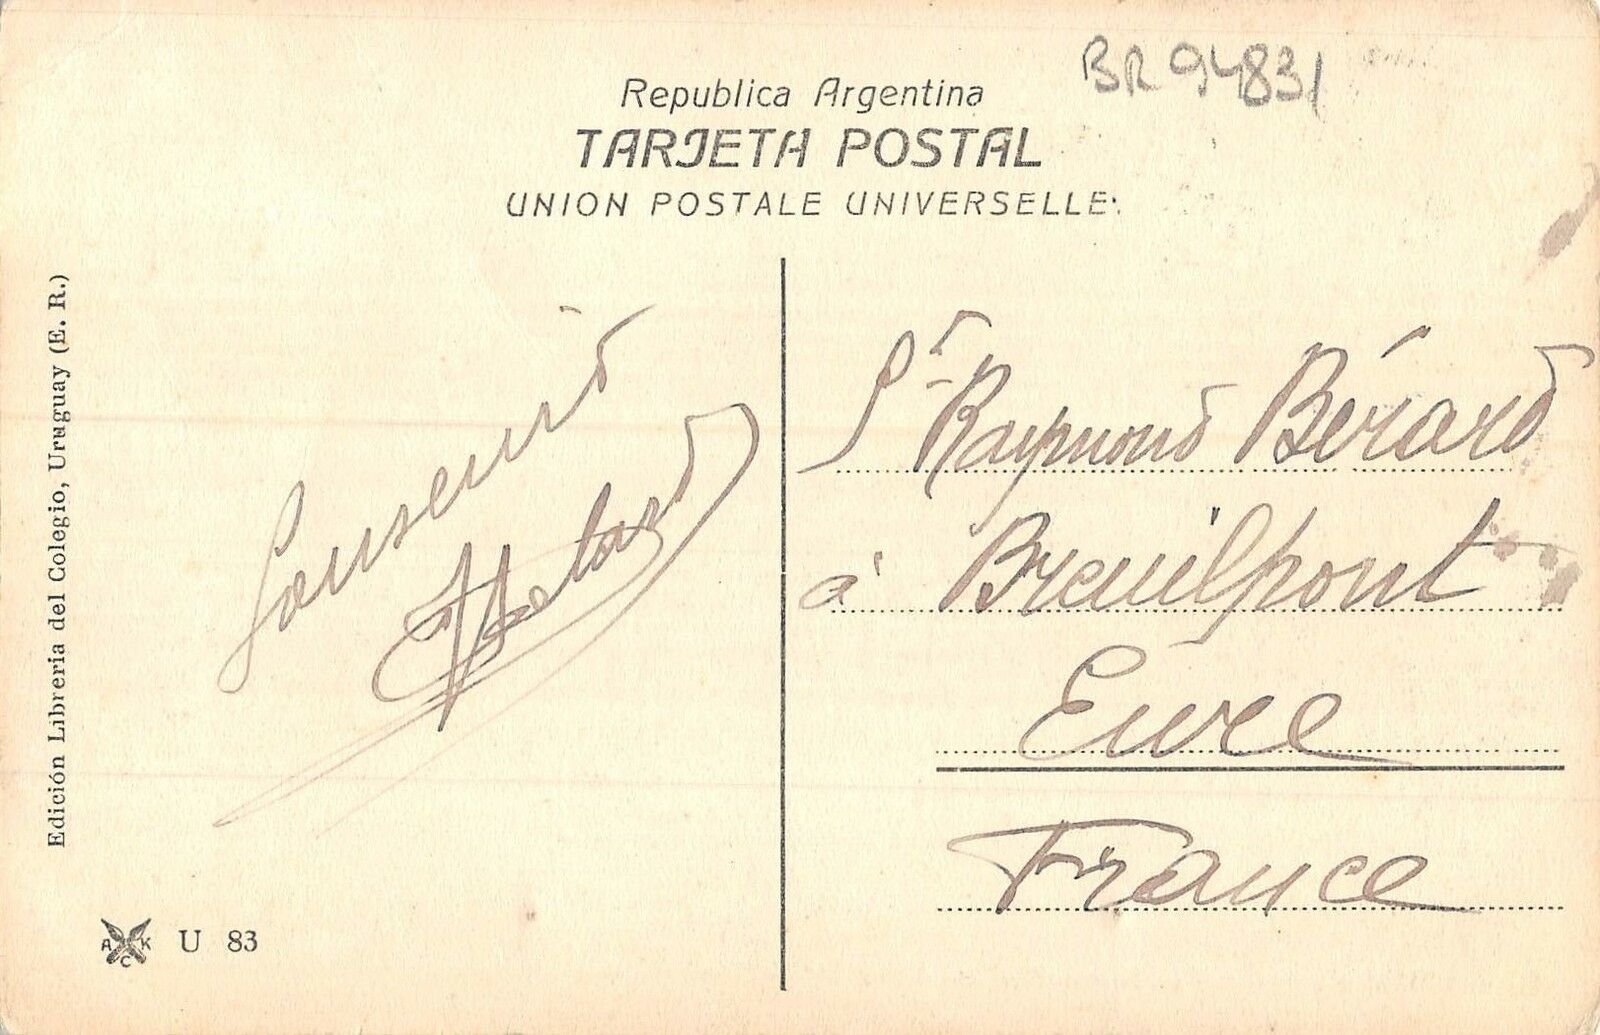 BR 94831
Republica Argentina
TARJETA POSTAL
UNION POSTALE UNIVERSELLE.
Edición Libreria del Colegio, Uruguay (E. R.)
Sr Raymond Bérard
à Breuilpont
Eure
France
A C K
U 83